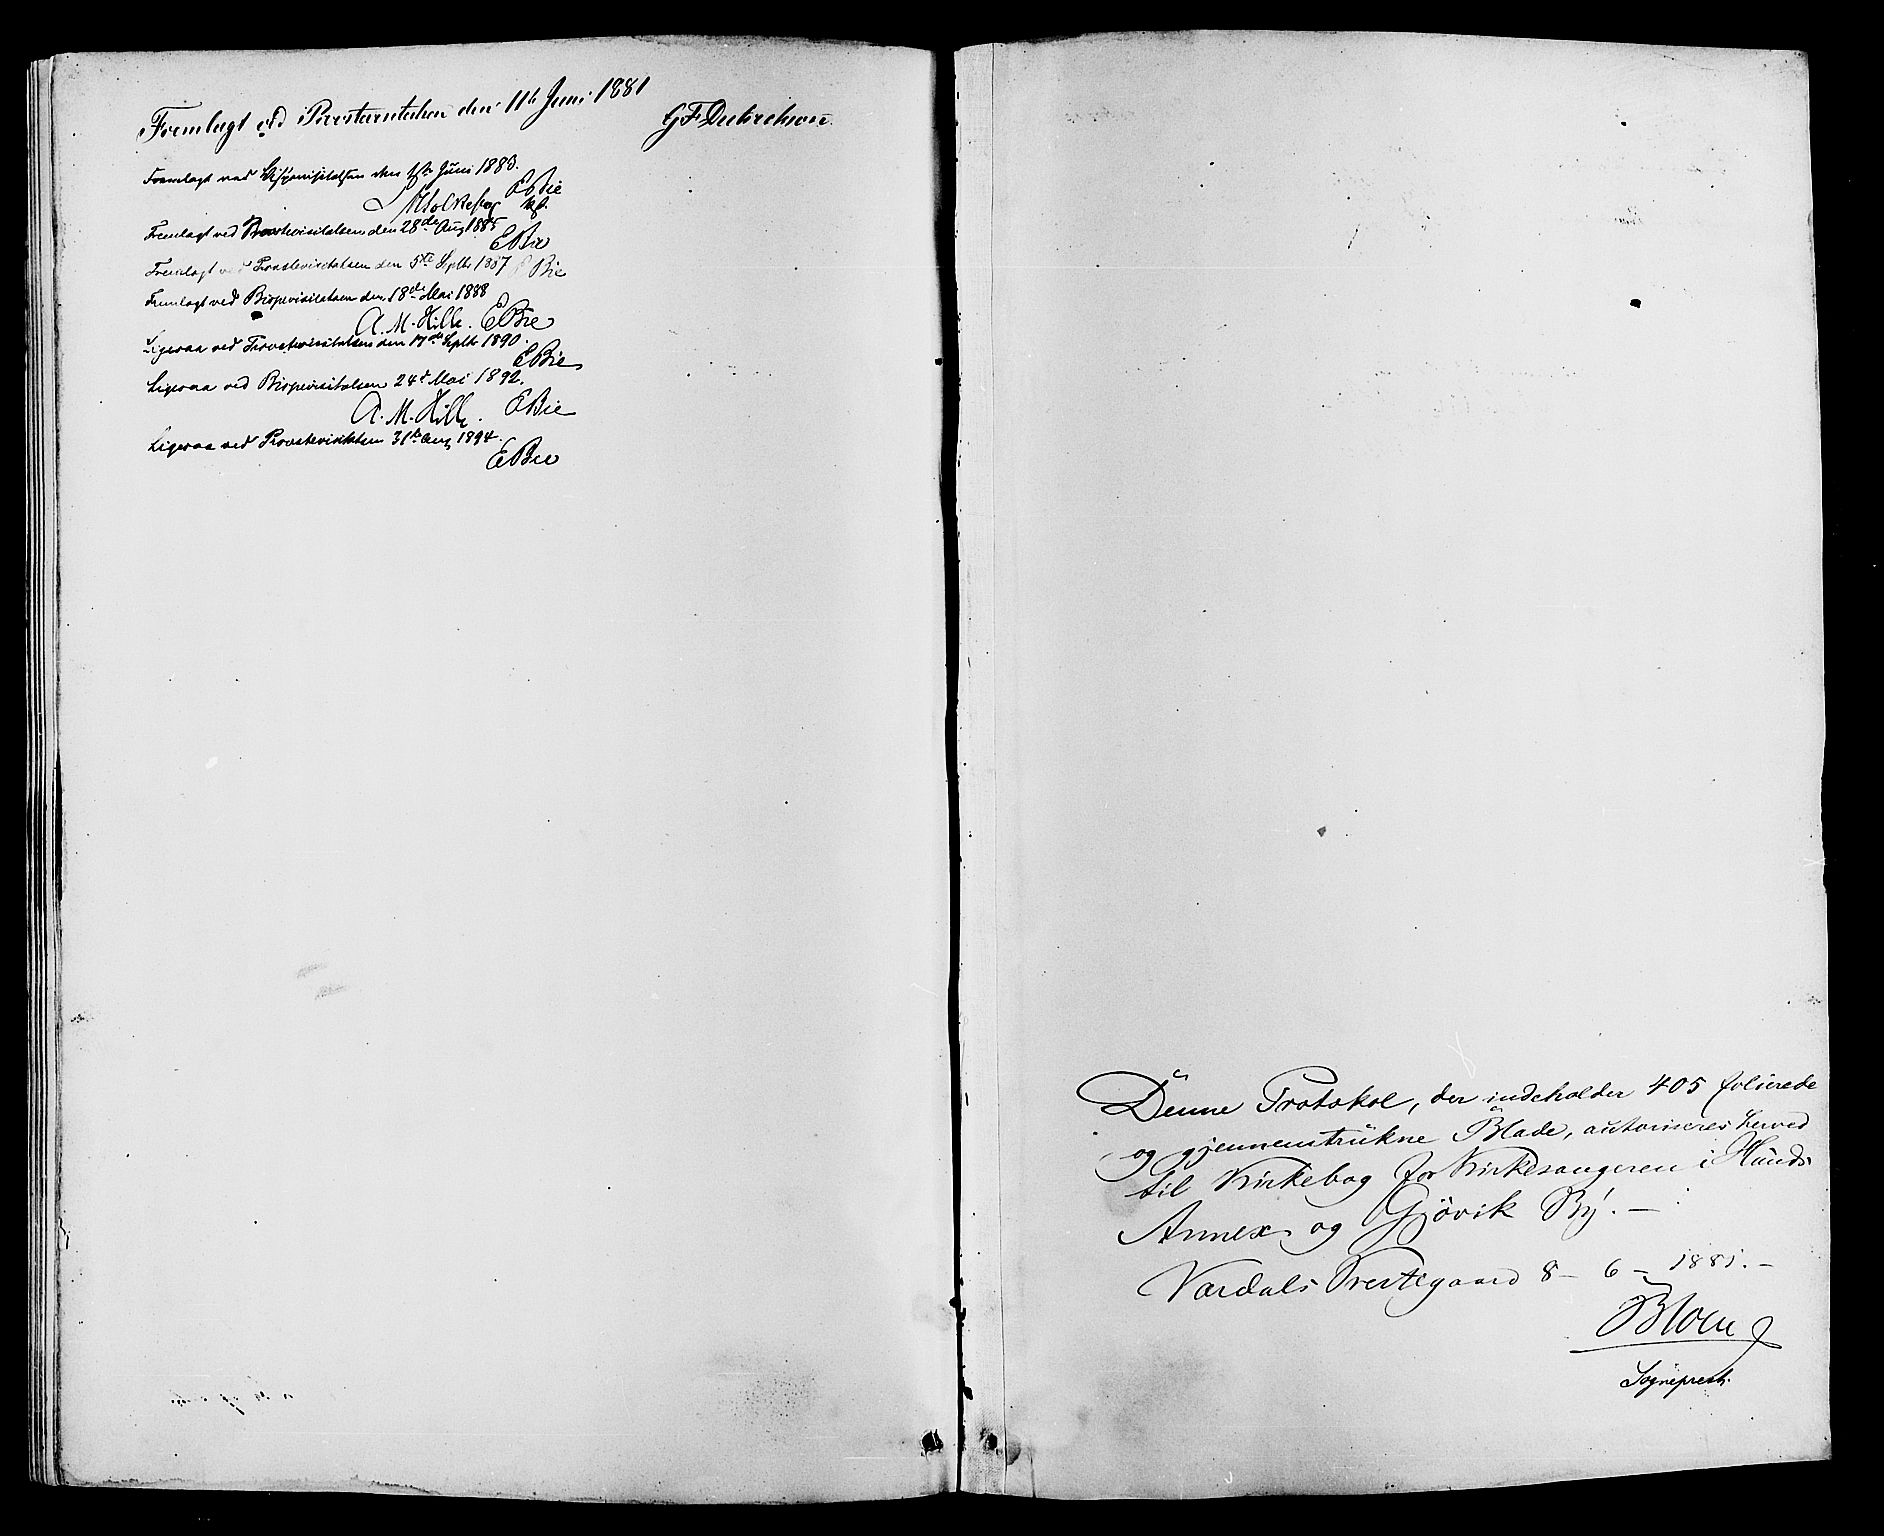 Fremlagt ved den 11te Juni 1881
Fremlagt ved Bispevisitatsen den Juni 1883.
EBie
Fremlagt ved Provstevisitatsen den 28de Aug 1885
EBie
Fremlagt ved Provstevisitatsen den 5te Septbr 1887 EBie
Fremlagt ved Bispevisitatsen den 18de Mai 1888
A. M. Hille. EBie
Ligesaa ved Provstevisitatsen den 17de Septbr 1890.
EBie
Ligesaa ved Bispevisitatsen 24de Mai 1892.
A. M. Hille. EBie
Ligesaa ved Provstevisitatsen 31te Aug 1894.
EBie
Denne Protokol, der indeholder 405 folierede
og gjennemtrukne Blade, autoriseres herved
til Kirkebog for Kirkesangeren i Hunds
Annex og Gjövik By. —
Vardals Prestegaard 8 – 6 – 1881. –
Sogneprest.